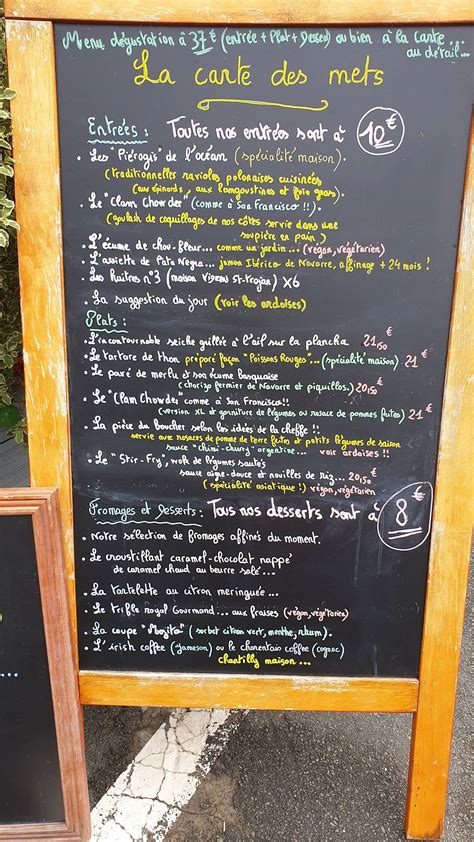 Menu dégustation à 37€ (entrée + Plat + Dessert) ou bien à la carte...
au détail...
La carte des mets
Entrées : Toutes nos entrées sont à 10€
. Les "Piérogis" de l'océan (spécialité maison).
(traditionnelles ravioles polonaises cuisinées
(aux épinards, aux langoustines et foie gras).
. Le "Clam Chowder" (comme à San Francisco !!).
(goulash de coquillages de nos côtes servie dans une
soupière en pain)
. L'écume de chou-fleur... comme un jardin... (vegan, végétarien)
. L'assiette de Pata Negra... jamon Ibérico de Navarre, affinage + 24 mois !
. Les Huîtres n°3 (maison St-trojan) x6
. La suggestion du jour (voir les ardoises)
Plats :
. L'incontournable seiche grillée à l'ail sur la plancha 21,50€
. Le tartare de thon préparé façon "Poissons Rouges"... (spécialité maison) 21€
. Le pavé de merlu et son écume basquaise
(chorizo fermier de Navarre et piquillos.) 20,50€
. Le "Clam Chowder" comme à San Francisco!!
(version XL et garniture de légumes ou rosace de pommes frites) 21€
. La pièce du boucher selon les idées de la cheffe !!
servie avec rosaces de pomme de terre frites et petits légumes de saison
sauce "chimi-churry" argentine... voir ardoises !!
. Le "Stir-Fry", wok de légumes sautés
sauce aigre-douce et nouilles de riz... 20,50€
(spécialité asiatique !) végan, végétarien
Fromages et Desserts : Tous nos desserts sont à 8€
. Notre sélection de fromages affinés du moment.
. Le croustillant caramel-chocolat nappé
de caramel chaud au beurre salé...
. La tartelette au citron meringuée...
. Le trifle royal Gourmand... aux fraises (végan, végétarien)
. La coupe "Mojito" (sorbet citron vert, menthe, rhum).
. L'irish coffee (Jameson) ou le charentais coffee (cognac)
chantilly maison...